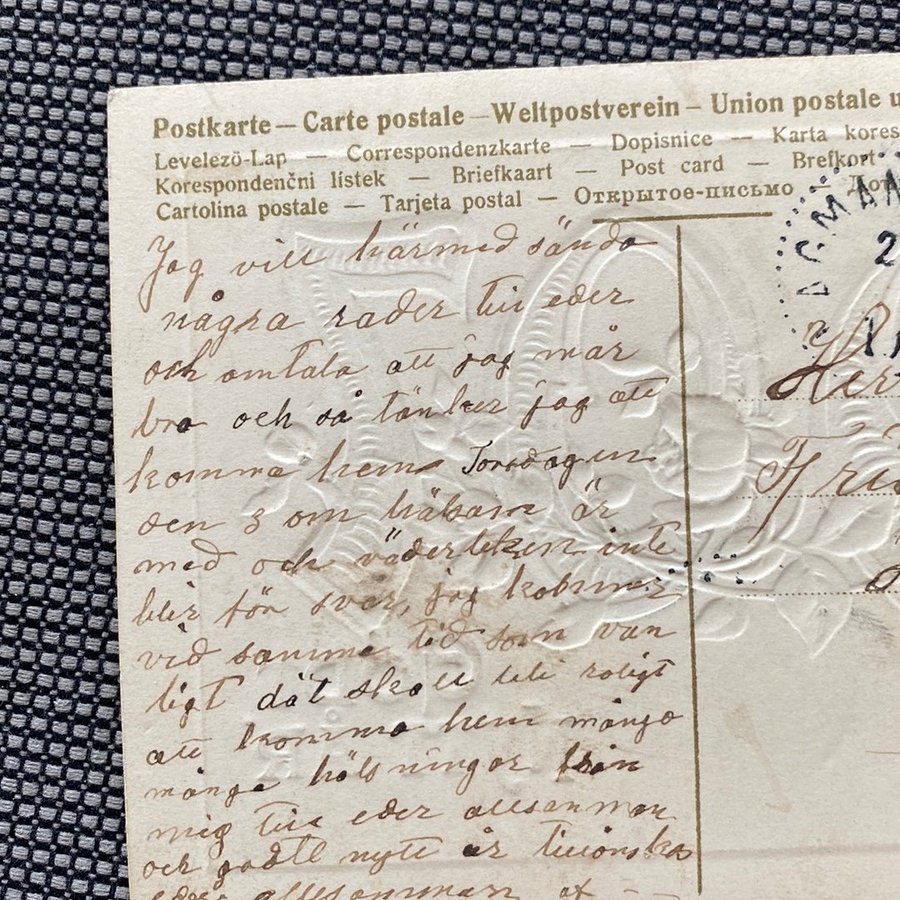 Postkarte — Carte postale — Weltpostverein — Union postale u
Levelező-Lap — Correspondenzkarte — Dopisnice — Karta kores
Korespondenční lístek — Briefkaart — Post card — Brefkort
Cartolina postale — Tarjeta postal — Открытое-письмо
Jag vill härmed sända
några rader till eder
och omtala att jag mår
bra och så tänker jag att
komma hem Torsdagen
den 3 om hälsan är
med och väderleken inte
blir för svor, jag kommer
vid samma tid som van
ligt dät skall bli roligt
att komma hem många
många hälsningar från
mig till eder allsamman
och godt nytt år tillönskas
eder allesamman af - -
AGMAN
2
Her
Fru